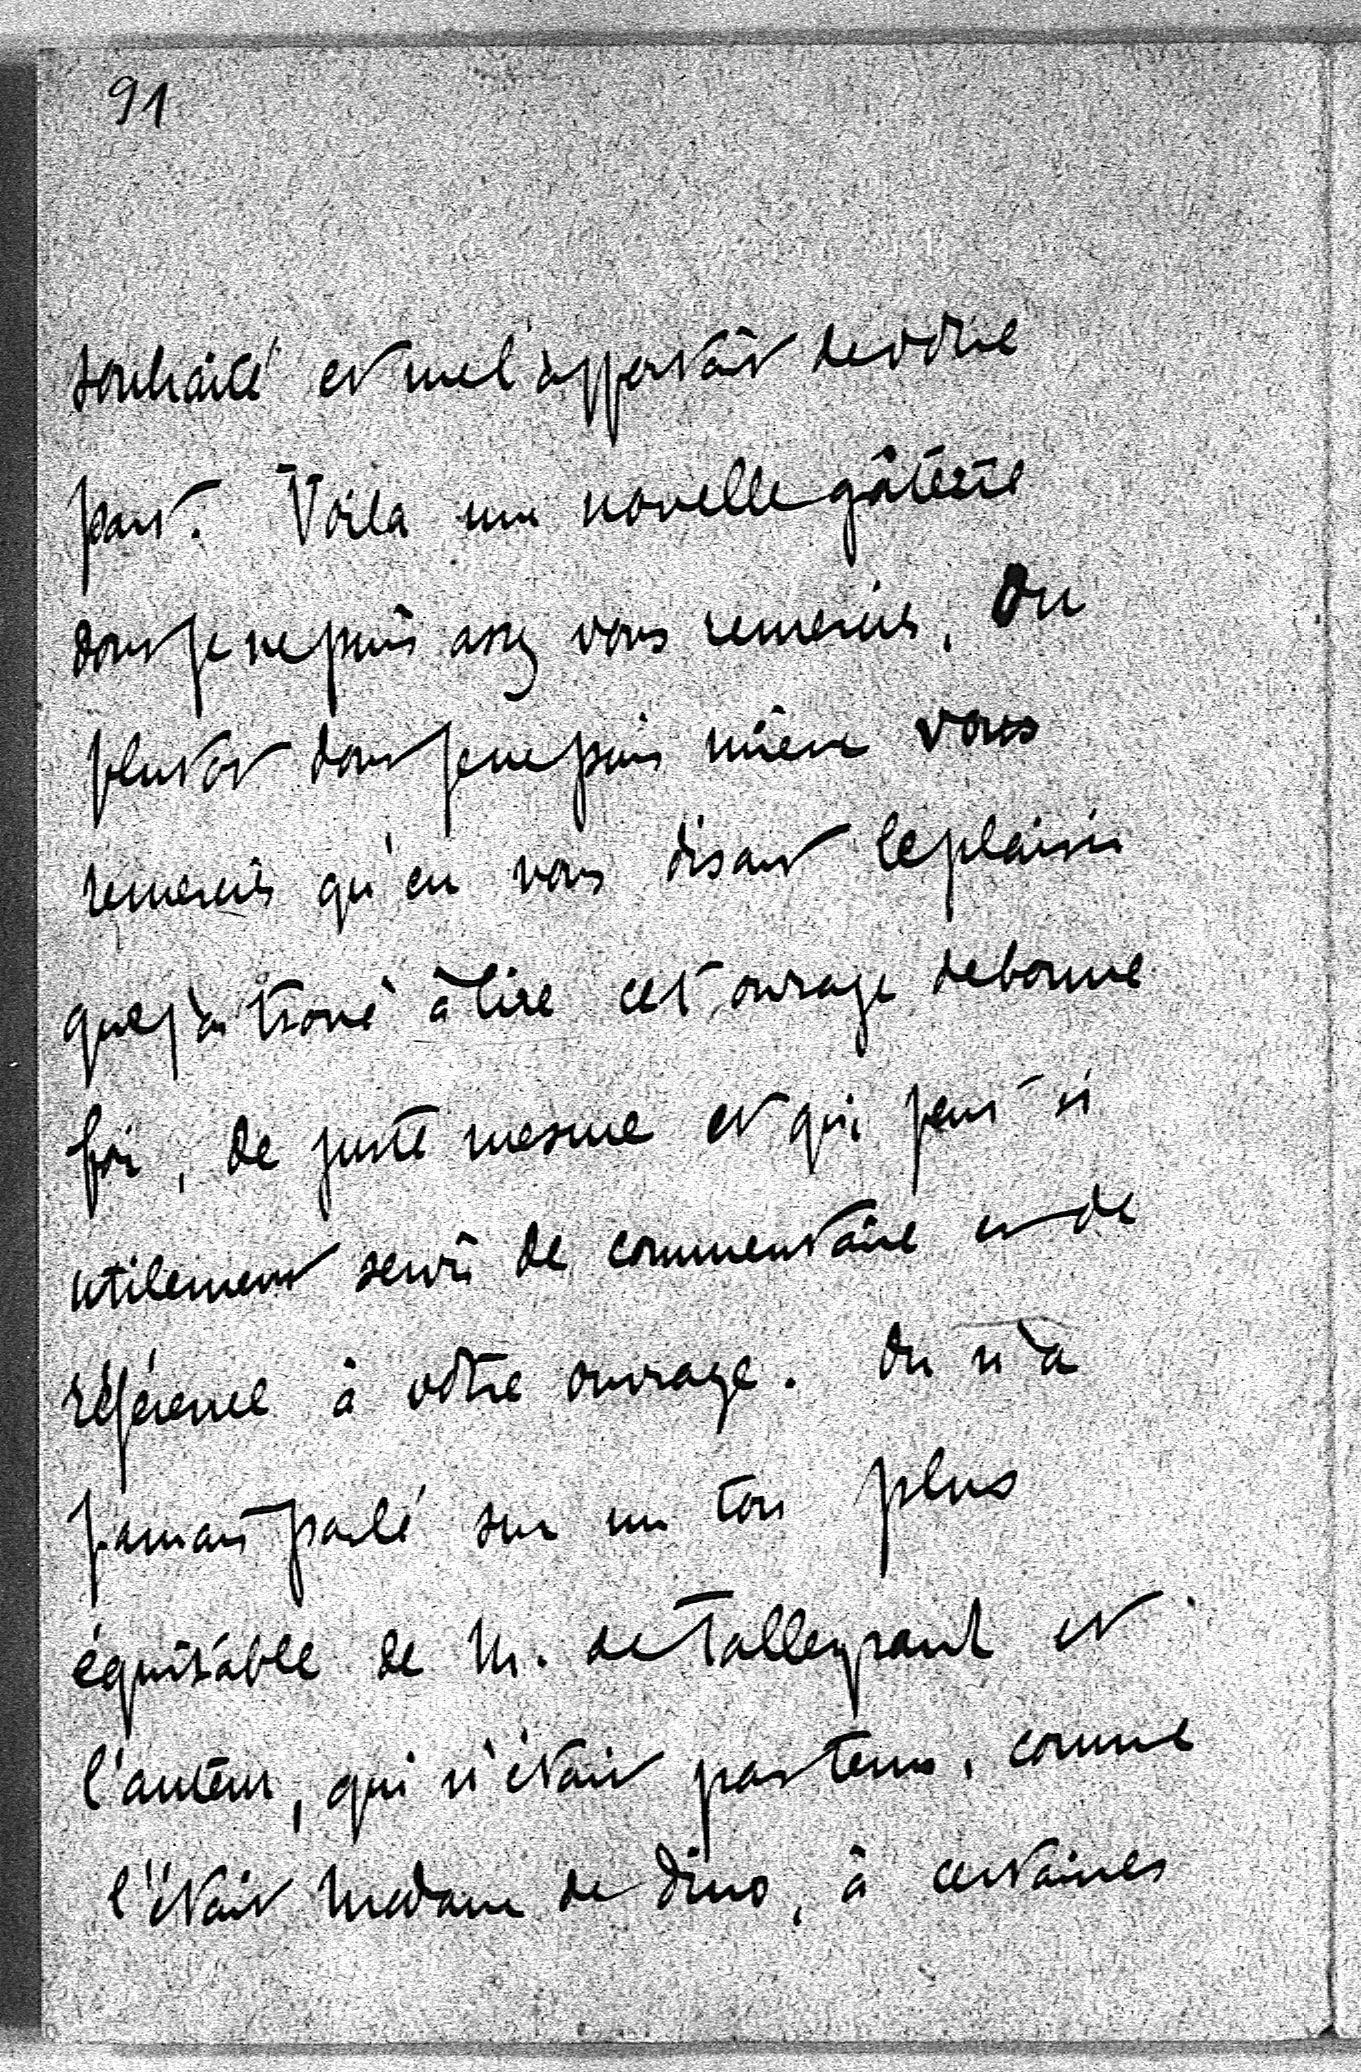 91
souhaité et me l'apportait de votre
part. Voila une novelle gâterie
dont je ne puis assez vous remercier. Ou
plutot dont je ne puis mieux vous
remercier qu'en vous disant le plaisir
que j'ai trouvé à lire cet ouvrage de bonne
foi, de juste mesure et qui peut si
utilement servir de commentaire et de
référence à votre ouvrage. On n'a
jamais parlé sur un ton plus
équitable de M. de Talleyrand et
l'auteur, qui n'était pas tenu, comme
l'était Madame de Dino, à certaines